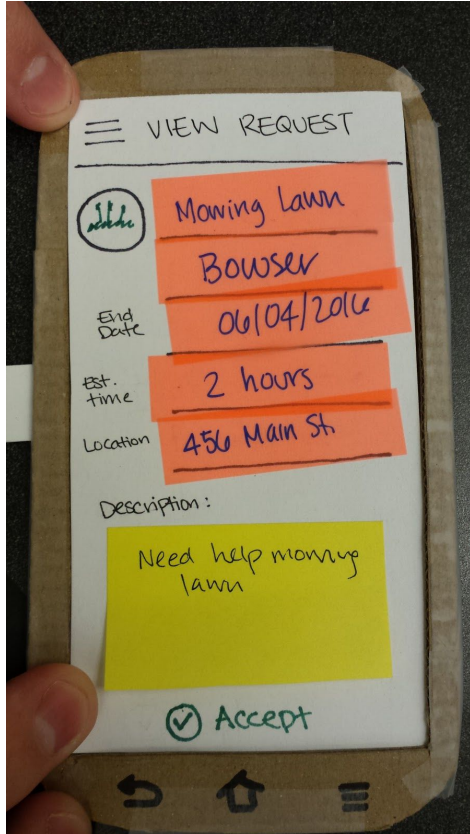 VIEW REQUEST
Mowing Lawn
Bowser
End
Date
06/04/2016
Est.
time
2 hours
Location
456 Main St.
Description:
Need help mowing
lawn
Accept